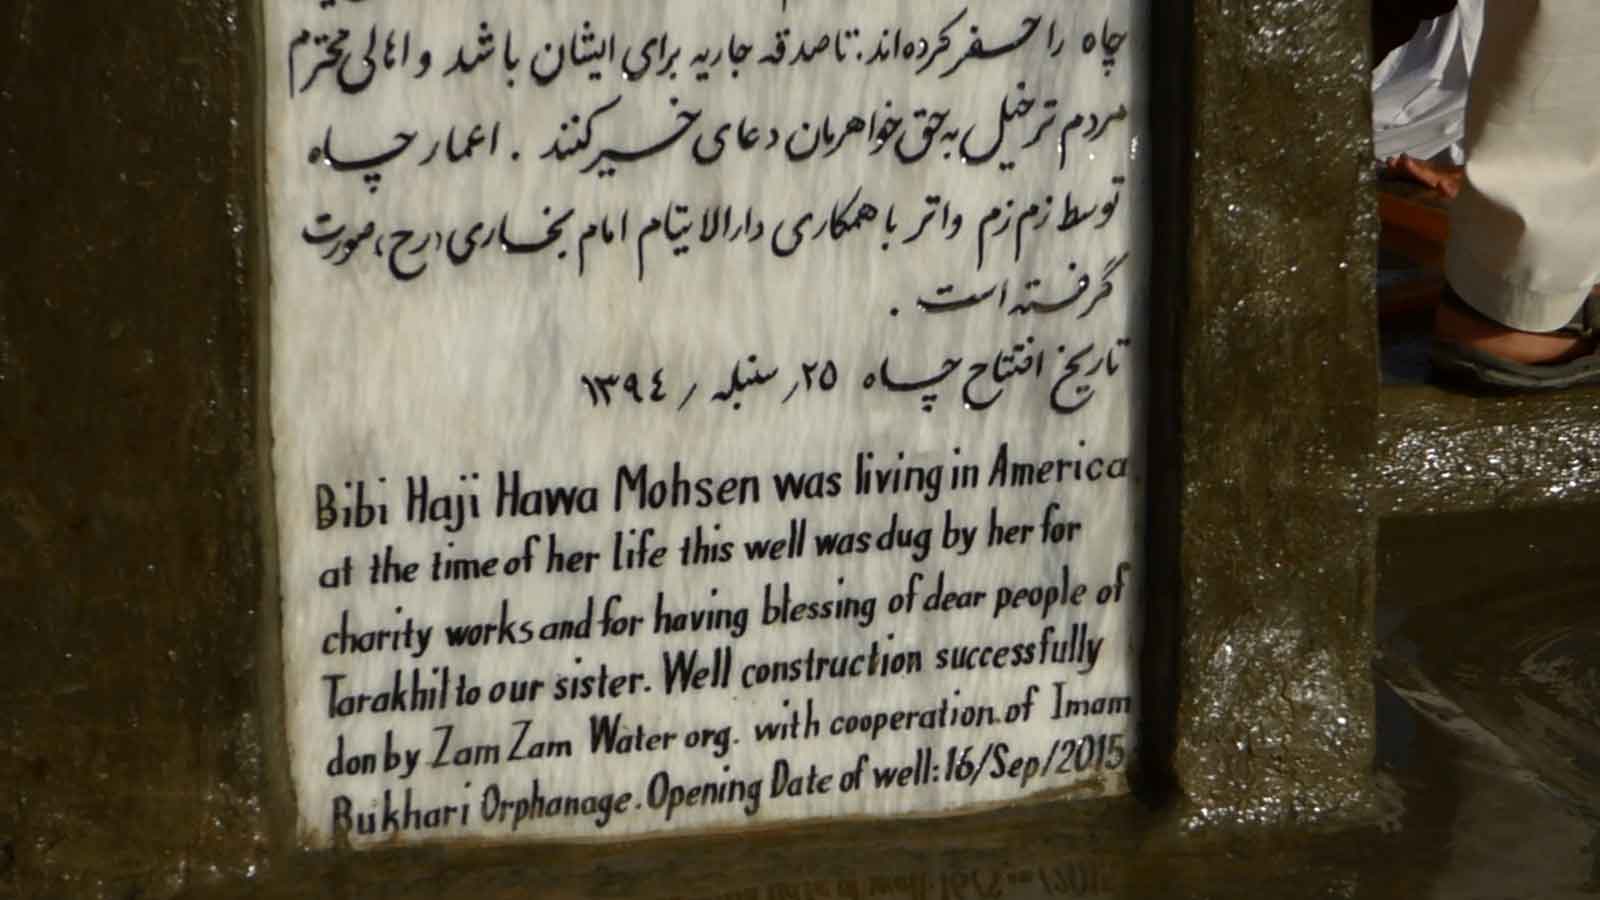 چاه را حفر کرده اند. تا صدقه جاریه برای ایشان باشد و اهالی محترم
مردم ترخیل به حق خواهرمان دعای خیر کنند . اعمار چاه
توسط زم زم واتر با همکاری دارالایتام امام بخاری (رح) صورت
گرفته است .
تاریخ افتتاح چاه ٢٥/ سنبله / ١٣٩٤
Bibi Haji Hawa Mohsen was living in America
at the time of her life this well was dug by her for
charity works and for having blessing of dear people of
Tarakhil to our sister. Well construction successfully
don by Zam Zam Water org. with cooperation of Imam
Bukhari Orphanage. Opening Date of well: 16/Sep/2015